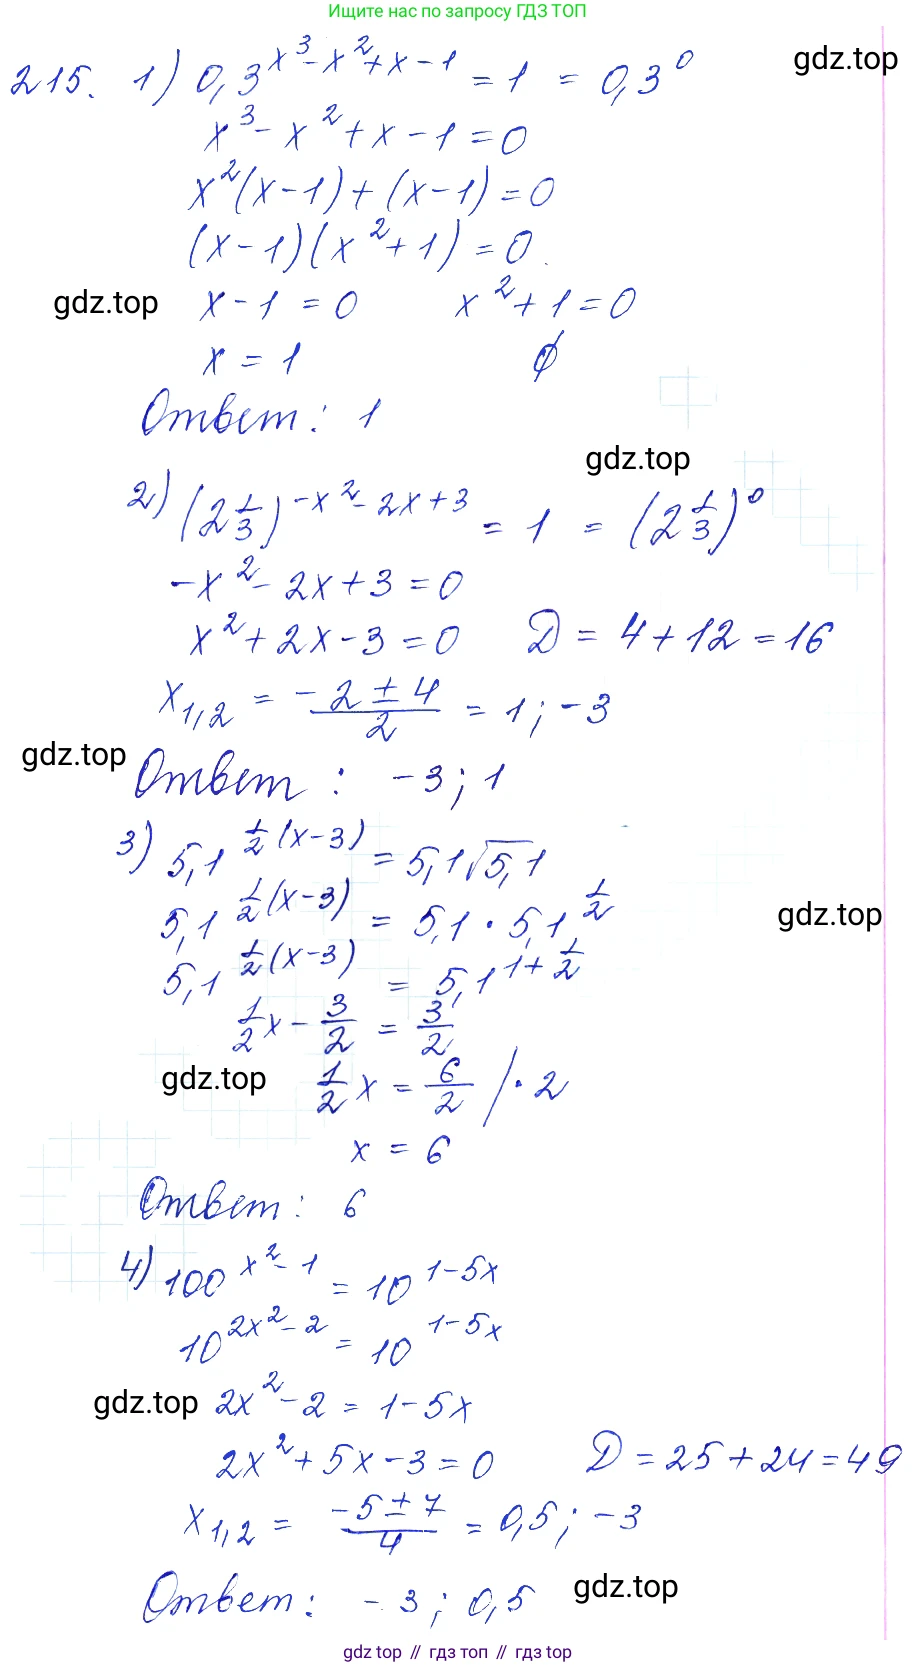 Ищите нас по запросу ГДЗ ТОП
gdz.top
215. 1) 0,3^(x³-x²+x-1) = 1 = 0,3⁰
x³ - x² + x - 1 = 0
x²(x-1) + (x-1) = 0
(x-1)(x²+1) = 0
gdz.top
x - 1 = 0 x² + 1 = 0
x = 1 ∅
Ответ: 1
gdz.top
2) (2 1/3)^(-x²-2x+3) = 1 = (2 1/3)⁰
-x² - 2x + 3 = 0
x² + 2x - 3 = 0 D = 4 + 12 = 16
x₁,₂ = (-2 ± 4)/2 = 1; -3
gdz.top
Ответ: -3; 1
3) 5,1^(1/2(x-3)) = 5,1√5,1
5,1^(1/2(x-3)) = 5,1 · 5,1^(1/2)
gdz.top
5,1^(1/2(x-3)) = 5,1^(1+1/2)
1/2 x - 3/2 = 3/2
gdz.top
1/2 x = 6/2 / · 2
x = 6
Ответ: 6
4) 100^(x²-1) = 10^(1-5x)
10^(2x²-2) = 10^(1-5x)
gdz.top
2x² - 2 = 1 - 5x
2x² + 5x - 3 = 0 D = 25 + 24 = 49
x₁,₂ = (-5 ± 7)/4 = 0,5; -3
gdz.top
Ответ: -3; 0,5
gdz top // гдз топ // гдз top